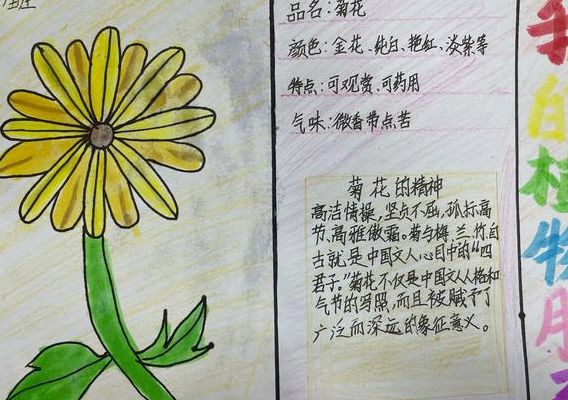 班
品名：菊花
颜色：金花、纯白、艳红、淡紫等
特点：可观赏、可药用
气味：微香带点苦
菊花的精神
高洁情操，坚贞不屈，孤标高
节、高雅傲霜。菊与梅、兰、竹自
古就是中国文人心目中的“四
君子。”菊花不仅是中国文人人格和
气节的写照，而且被赋予了
广泛而深远的象征意义。
我
的
植
物
朋